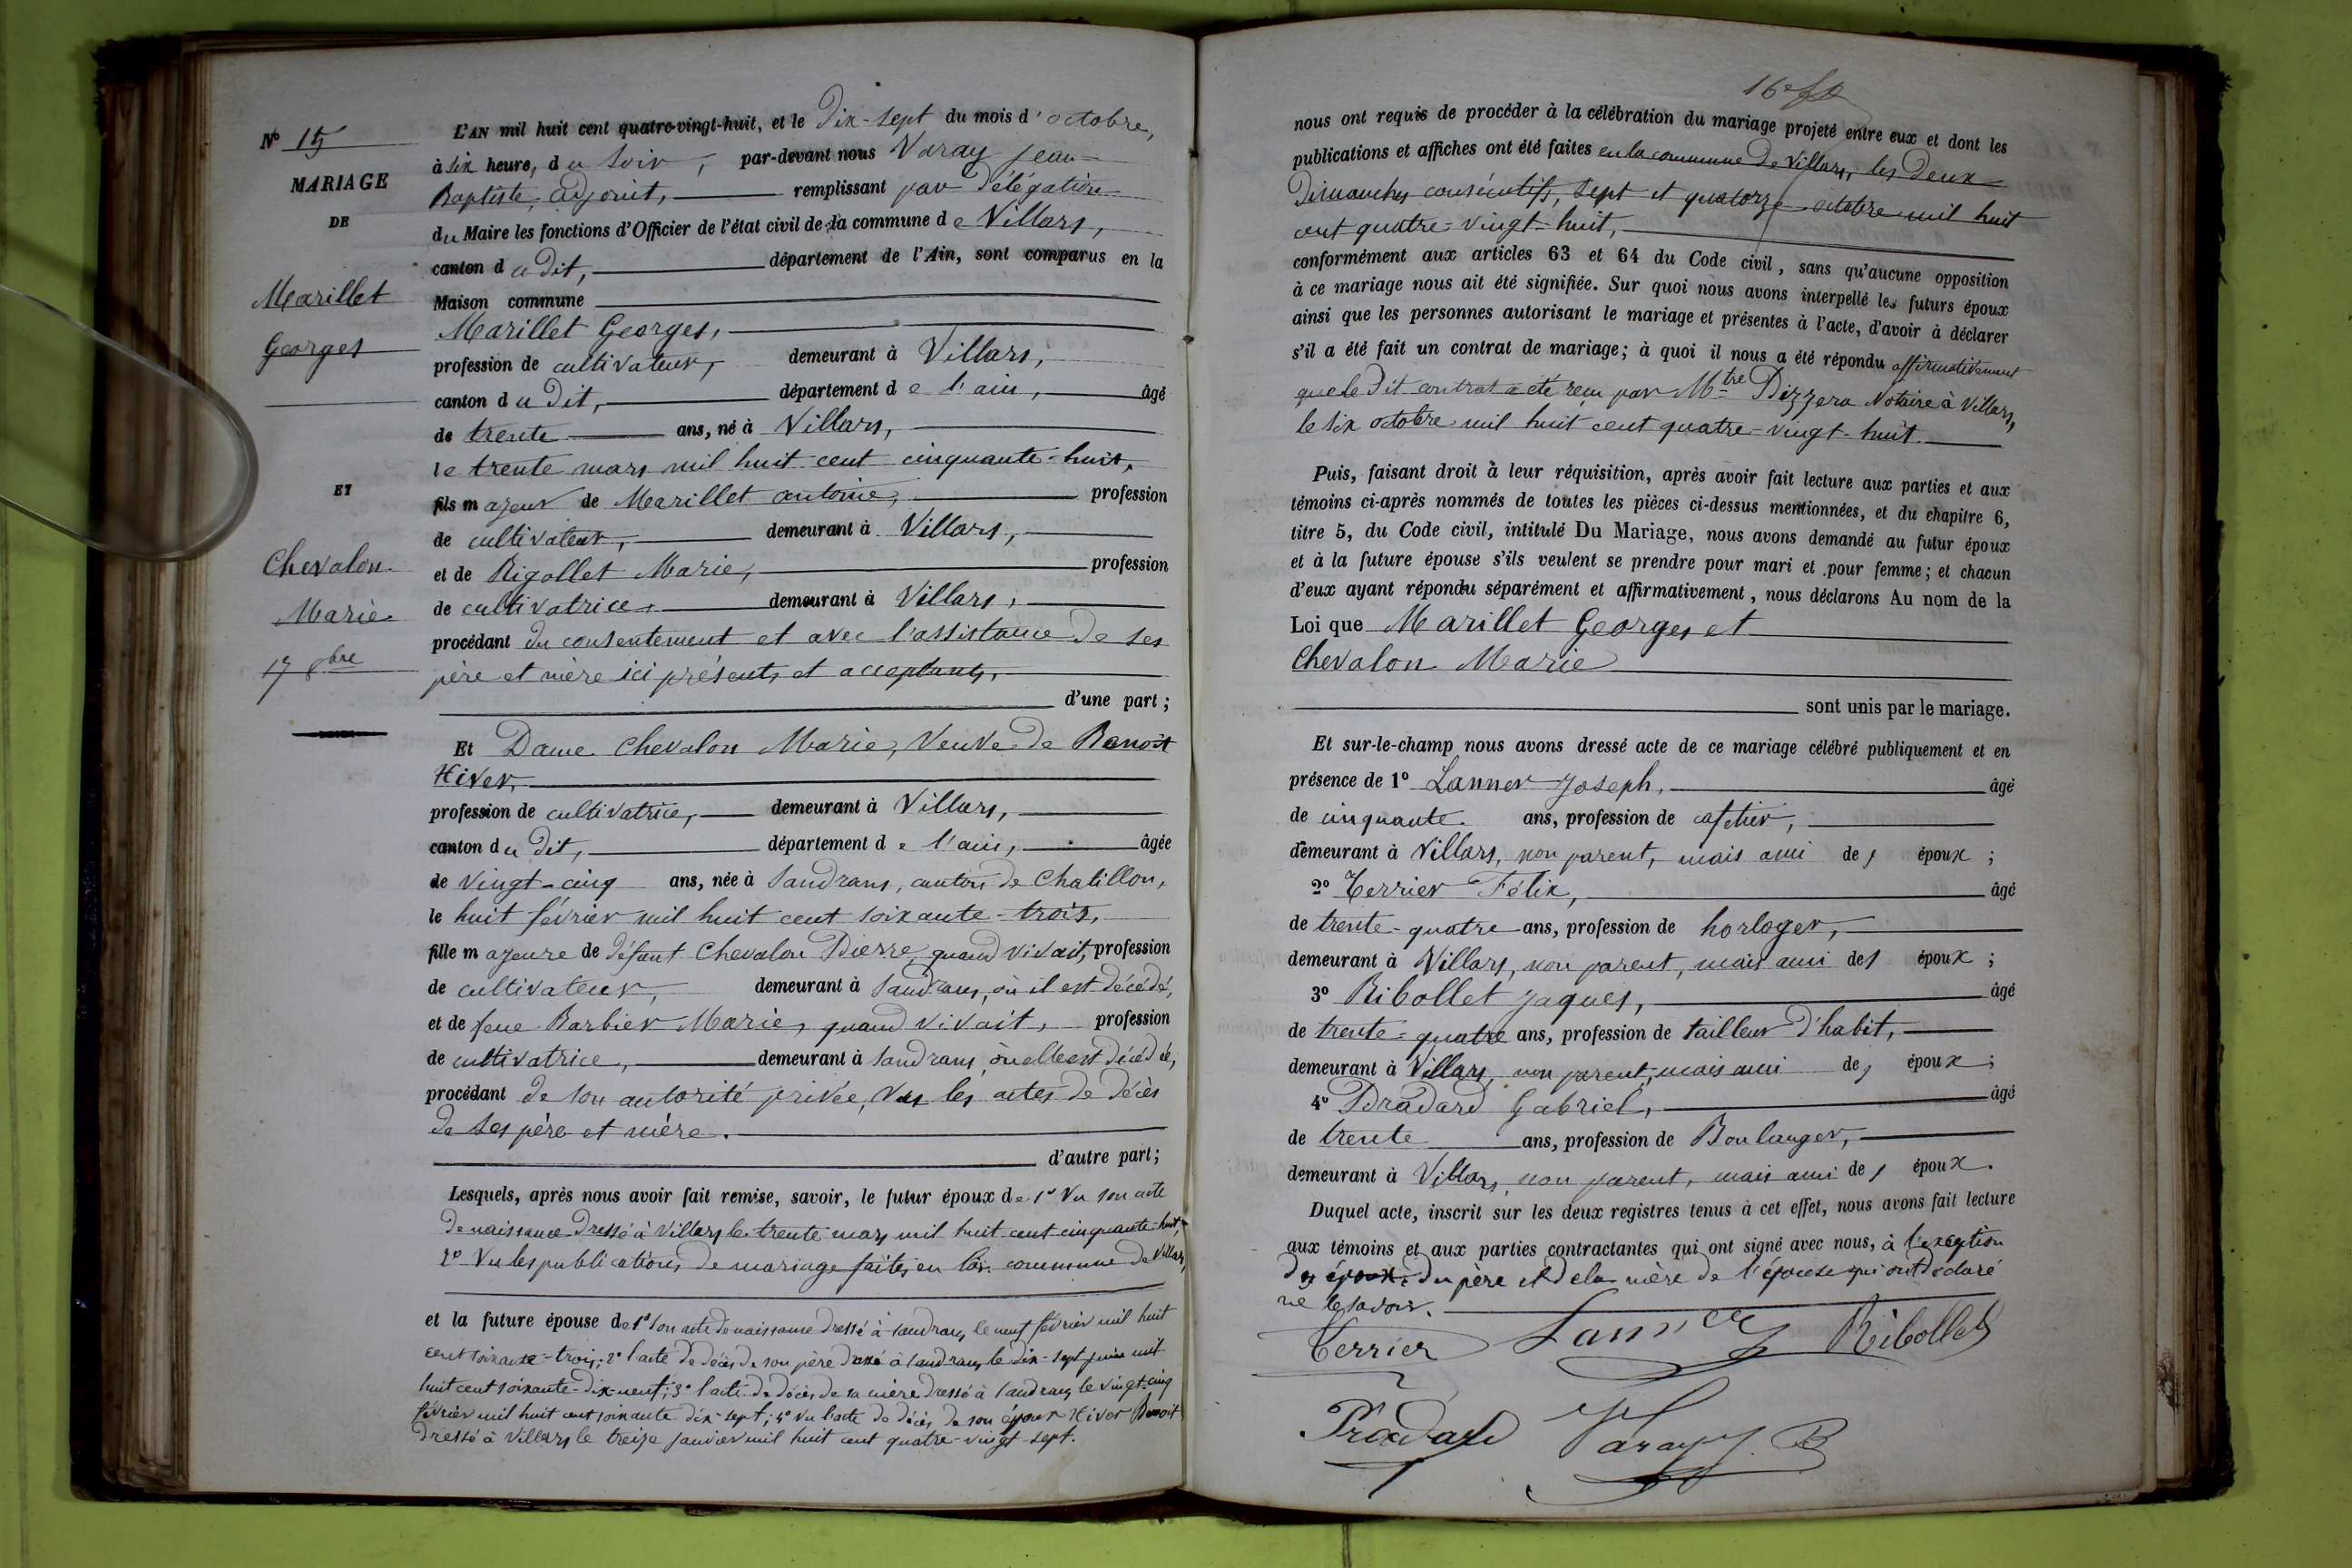 N° 15
MARIAGE
DE
Marillet
Georges
ET
Chevalon
Marie
17 8bre
L'AN mil huit cent quatre-vingt-huit, et le Dix-sept du mois d'octobre,
à six heure, du soir, par-devant nous Varay Jean-
Baptiste, adjoint, remplissant par délégation
du Maire les fonctions d'Officier de l'état civil de la commune de Villars,
canton du dit, département de l'Ain, sont comparus en la
Maison commune
Marillet Georges,
profession de cultivateur, demeurant à Villars,
canton du dit, département de l'ain, âgé
de trente ans, né à Villars,
le trente mars mil huit cent cinquante-huit,
fils majeur de Marillet antoine, profession
de cultivateur, demeurant à Villars,
et de Rigollet Marie, profession
de cultivatrice, demeurant à Villars,
procédant du consentement et avec l'assistance de ses
père et mère ici présents et acceptants,
d'une part;
Et Dame Chevalon Marie, Veuve de Benoit
Hiver,
profession de cultivatrice, demeurant à Villars,
canton du dit, département de l'ain, âgée
de vingt-cinq ans, née à Sandrans, canton de Chatillon,
le huit février mil huit cent soixante-trois,
fille majeure de défunt Chevalon Pierre, quand vivait, profession
de cultivateur, demeurant à Sandrans, où il est décédé,
et de feue Barbier Marie, quand vivait, profession
de cultivatrice, demeurant à Sandrans, où elle est décédée,
procédant de son autorité privée, Vus les actes de décès
de ses père et mère.
d'autre part;
Lesquels, après nous avoir fait remise, savoir, le futur époux de 1° Vu son acte
de naissance dressé à Villars le trente mars mil huit cent cinquante-huit,
2° Vu les publications de mariage faites en la commune de Villars,
et la future épouse de 1° son acte de naissance dressé à Sandrans le neuf février mil huit
cent soixante-trois; 2° l'acte de décès de son père dressé à Sandrans le dix-sept juin mil
huit cent soixante-dix-neuf; 3° l'acte de décès de sa mère dressé à Sandrans le vingt-cinq
février mil huit cent soixante dix-sept; 4° vu l'acte de décès de son époux Hiver Benoit
dressé à Villars le treize janvier mil huit cent quatre-vingt-sept.
nous ont requis de procéder à la célébration du mariage projeté entre eux et dont les
publications et affiches ont été faites en la commune de Villars, les deux
Dimanches consécutifs, sept et quatorze octobre mil huit
cent quatre-vingt-huit,
conformément aux articles 63 et 64 du Code civil, sans qu'aucune opposition
à ce mariage nous ait été signifiée. Sur quoi nous avons interpellé les futurs époux
ainsi que les personnes autorisant le mariage et présentes à l'acte, d'avoir à déclarer
s'il a été fait un contrat de mariage; à quoi il nous a été répondu affirmativement
que le dit contrat a été reçu par Mtre Dizzera Notaire à Villars,
le six octobre mil huit cent quatre-vingt-huit.
Puis, faisant droit à leur réquisition, après avoir fait lecture aux parties et aux
témoins ci-après nommés de toutes les pièces ci-dessus mentionnées, et du chapitre 6,
titre 5, du Code civil, intitulé Du Mariage, nous avons demandé au futur époux
et à la future épouse s'ils veulent se prendre pour mari et pour femme; et chacun
d'eux ayant répondu séparément et affirmativement, nous déclarons Au nom de la
Loi que Marillet Georges et
Chevalon Marie
sont unis par le mariage.
Et sur-le-champ nous avons dressé acte de ce mariage célébré publiquement et en
présence de 1° Lanner Joseph, âgé
de cinquante ans, profession de cafetier,
demeurant à Villars, non parent, mais ami des époux;
2° Terrier Félix, âgé
de trente-quatre ans, profession de horloger,
demeurant à Villars, non parent, mais ami des époux;
3° Ribollet Jaques, âgé
de trente-quatre ans, profession de tailleur d'habit,
demeurant à Villars, non parent, mais ami des époux;
4° Pradard Gabriel, âgé
de trente ans, profession de Boulanger,
demeurant à Villars, non parent, mais ami des époux.
Duquel acte, inscrit sur les deux registres tenus à cet effet, nous avons fait lecture
aux témoins et aux parties contractantes qui ont signé avec nous, à l'exception
des époux, du père et de la mère de l'épouse qui ont déclaré
ne le savoir.
Terrier Lanner Ribollet
Pradard Varay J. B